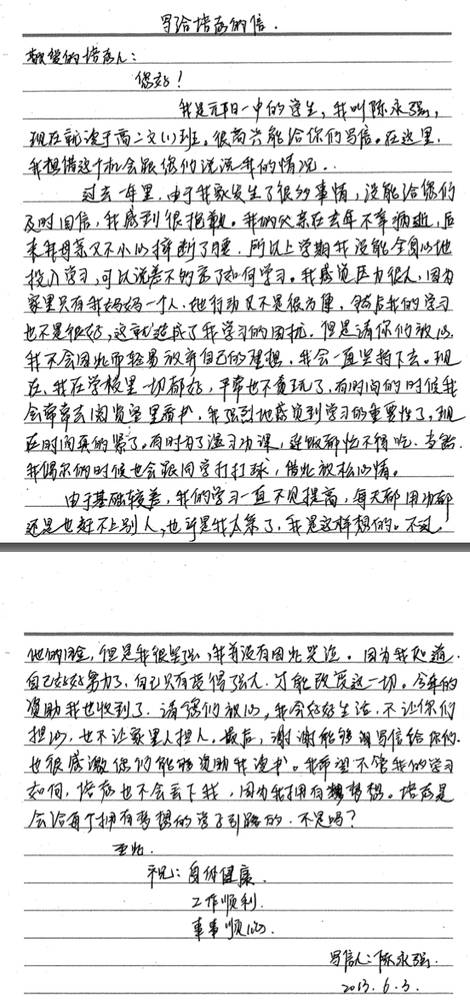 写给培为的信.
敬爱的培为人：
您好！
我是元阳一中的学生，我叫陈永强，
现在就读于高二文(1)班。很高兴能给你们写信。在这里，
我想借这个机会跟您们说说我的情况。
过去一年里，由于我家发生了很多事情，没能给您们
及时回信，我感到很抱歉。我的父亲在去年不幸病逝，后
来我母亲又不小心摔断了腰，所以上学期我没能全身心地
投入学习，可以说差不的忘了如何学习。我感觉压力很大，因为
家里只有我妈妈一个人，她行动又不是很方便，然后我的学习
也不是很好，这就造成了我学习的困扰。但是请你们放心，
我不会因此而轻易放弃自己的理想，我会一直坚持下去。现
在，我在学校里一切都好，平常也不贪玩了，有时间的时候我
会常常去阅览室里看书，我强烈地感觉到学习的重要性了，现
在时间真的紧了。有时为了温习功课，连饭都忙不得吃。当然.
我偶尔的时候也会跟同学打打球，借此放松心情。
由于基础较差，我的学习一直不见提高，每天都用功都
还是也赶不上别人，也许是我太笨了，我是这样想的。不过
他的，但是我很坚强，我并没有因此哭泣。因为我知道，
自己好好努力了，自己只有变得强大，才能改变这一切。今年的
资助我也收到了，请您们放心，我会好好生活，不让你们
担心，也不让家里人担人。最后，谢谢能够写信给你们.
也很感激您们能够资助我读书。我希望不管我的学习
如何，培为也不会丢下我，因为我拥有梦想。培为是
会给每个拥有梦想的学子引路的，不是吗？
至此.
祝：身体健康.
工作顺利.
事事顺心.
写信人：陈永强.
2013.6.3.